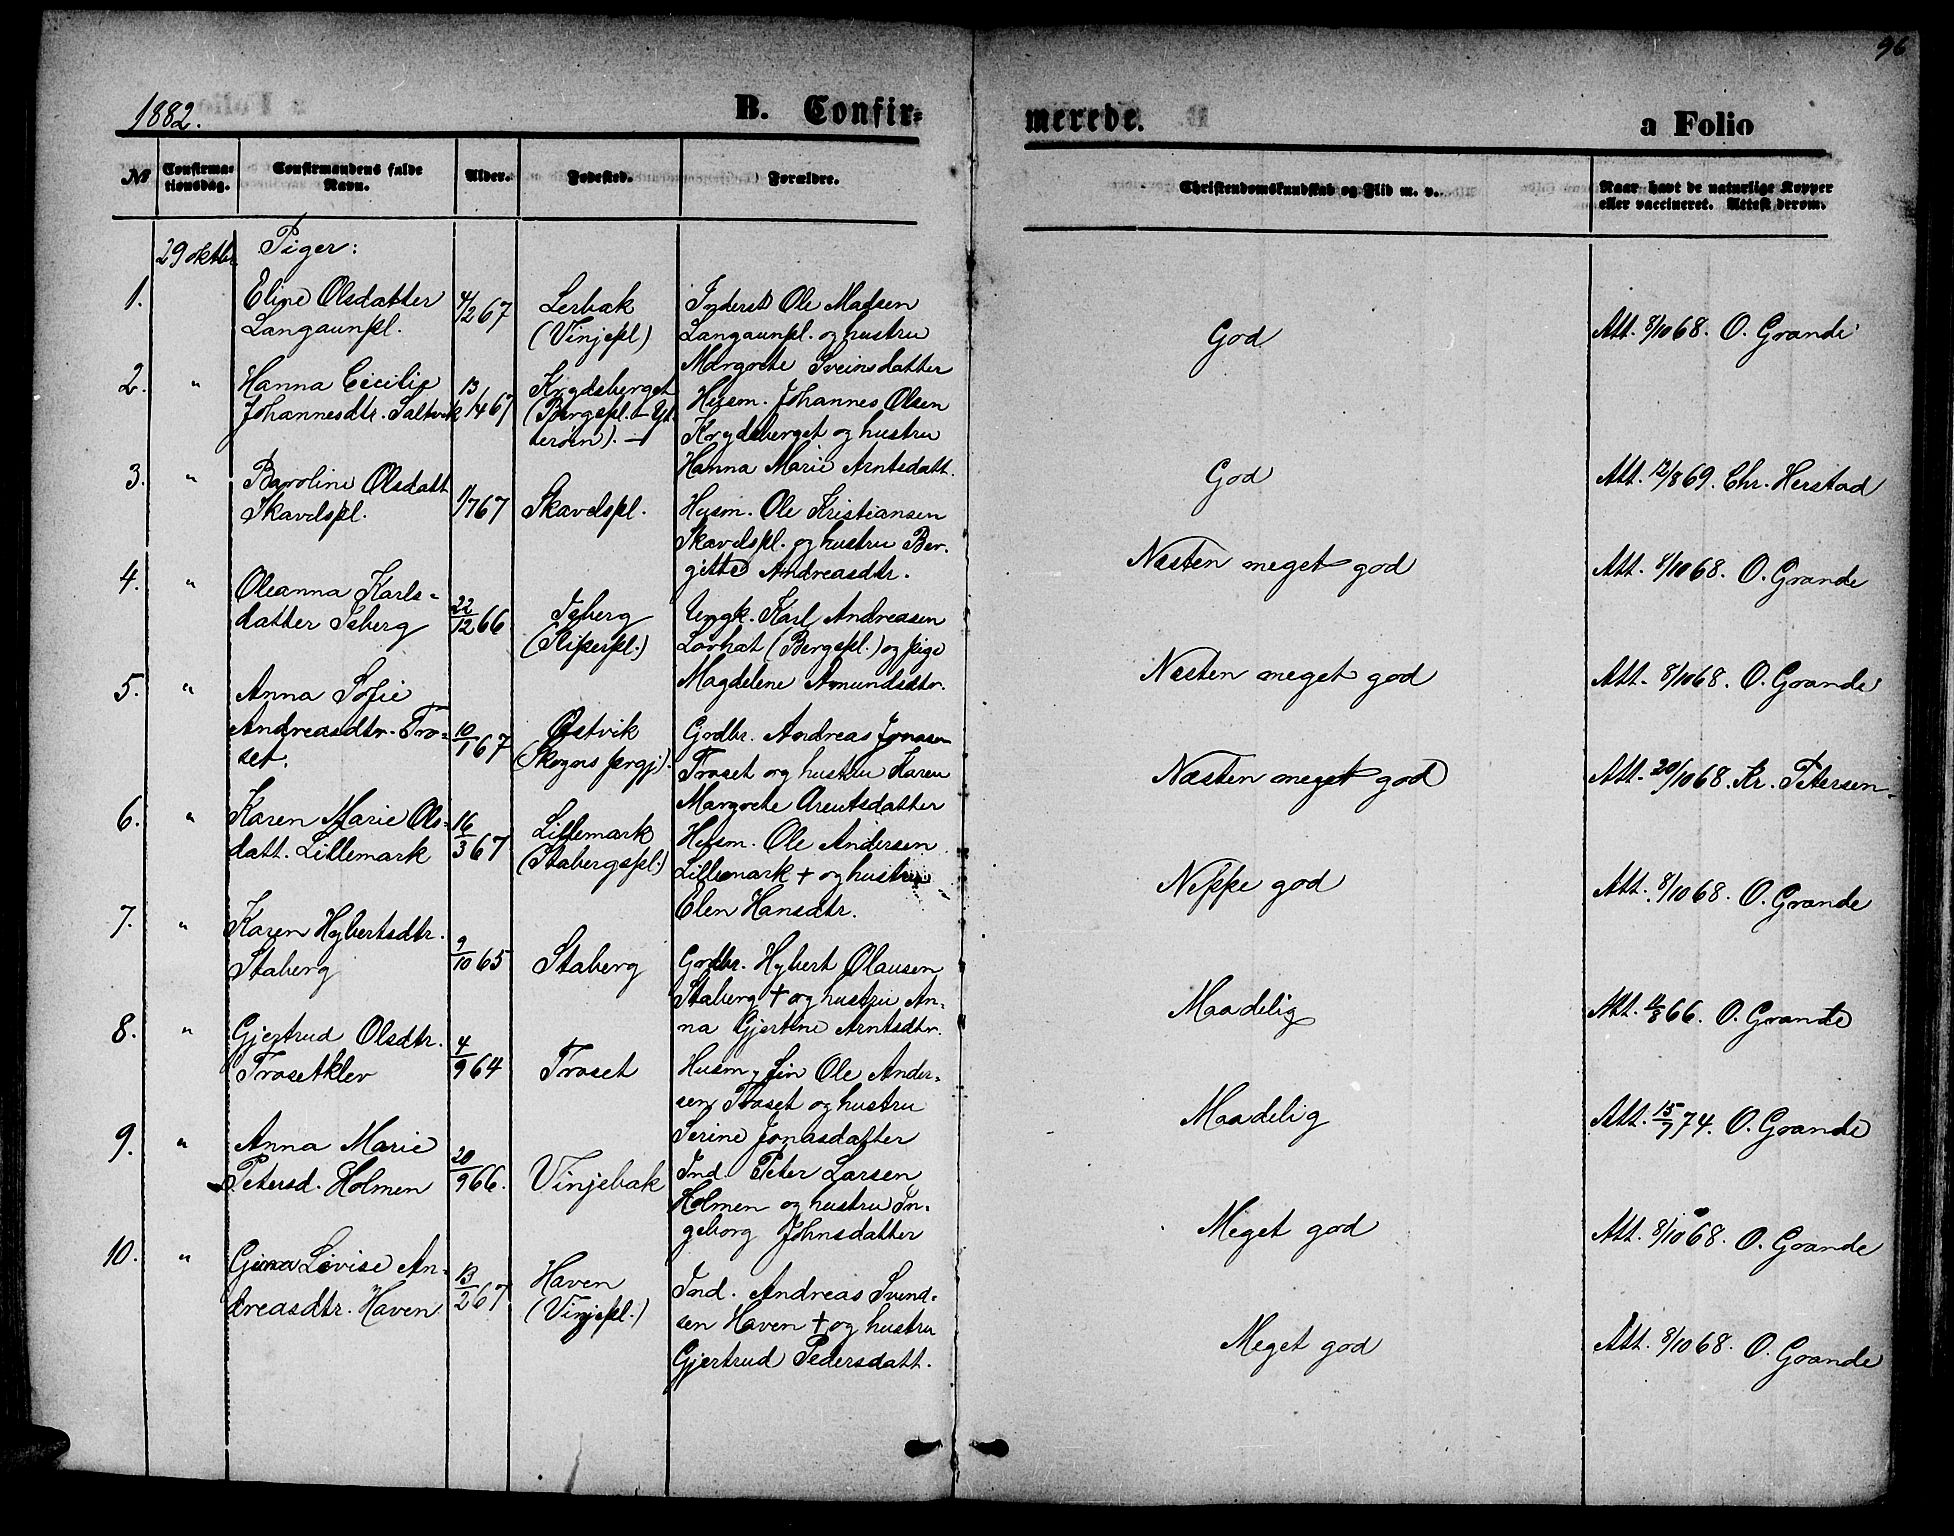 96
1882.
B. Confir=
merede.
a Folio
No
Confirma=
tionsdag.
Confirmandens fulde
Navn.
Alder.
Fødested.
Forældre.
Christendomskundskab og Flid m. v.
Naar havt de naturlige Kopper
eller vaccineret. Attest derom.
29 oktbr.
Piger:
1.
Eline Olsdatter
Langaunpl.
4/2 67
Lerbak
(Vinjepl)
Inderst Ole Madsen
Langaunpl. og hustru
Margrete Sveinsdatter
God
Att. 8/10 68. O. Grande
2. "
Hanna Cecilie
Johannesdtr. Saltvik
13/1467
Krydsberget
(Bergspl. - Yt-
terøen). -
Husm. Johannes Olsen
Krydsberget og hustru
Hanna Marie Arntsdatt.
God
Att. 12/8 69. Chr. Herstad
3. "
Baroline Olsdatt
Skavdspl.
1/7 67
Skavdspl.
Husm. Ole Kristiansen
Skavdspl. og hustru Ber-
gitte Andreasdtr.
Næsten meget god
Att. 8/10 68. O. Grande
4. "
Oleanna Karls=
datter Isberg
22/12 66
Isberg
(Sliperpl.)
Ungk. Karl Andreasen
Lorhat (Bergspl.) og pige
Magdelene Amundsdtr.
Næsten meget god
Att. 8/10 68. O. Grande
5. "
Anna Sofie
Andreasdtr. Tro=
set.
10/1 67
Østvik
(Skogns prgj).
Grdbr. Andreas Jonasen
Troset og hustru Karen
Margrete Arentsdatter
Næsten meget god
Att. 20/10 68. Kr. Petersen
6. "
Karen Marie Ols-
datt. Lillemark
16/3 67
Lillemark
(Stabergspl.)
Husm. Ole Andersen
Lillemark + og hustru
Elen Hansdtr.
Neppe god
Att. 8/10 68. O. Grande
7. "
Karen Hybertsdtr.
Staberg
9/10 65
Staberg
Grdbr. Hybert Olausen
Staberg + og hustru An-
na Gjertine Arntsdtr.
Maadelig
Att. 11/8 66. O. Grande
8. "
Gjertrud Olsdtr.
Trosetklev
4/9 64
Troset
Husm. Ole Ander=
sen Troset og hustru
Serine Jonasdatter
Maadelig
Att. 15/7 74. O. Grande
9. "
Anna Marie
Petersd. Holmen
20/9 66.
Vinjebak
Ind. Peter Larsen
Holmen og hustru In-
geborg Johnsdatter
Meget god
Att. 8/10 68. O. Grande
10. "
Gjena Lovise An-
dreasdtr. Haven
13/2 67
Haven
(Vinjepl.)
Ind. Andreas Svend-
sen Haven + og hustru
Gjertrud Pedersdatt.
Meget god
Att. 8/10 68. O. Grande